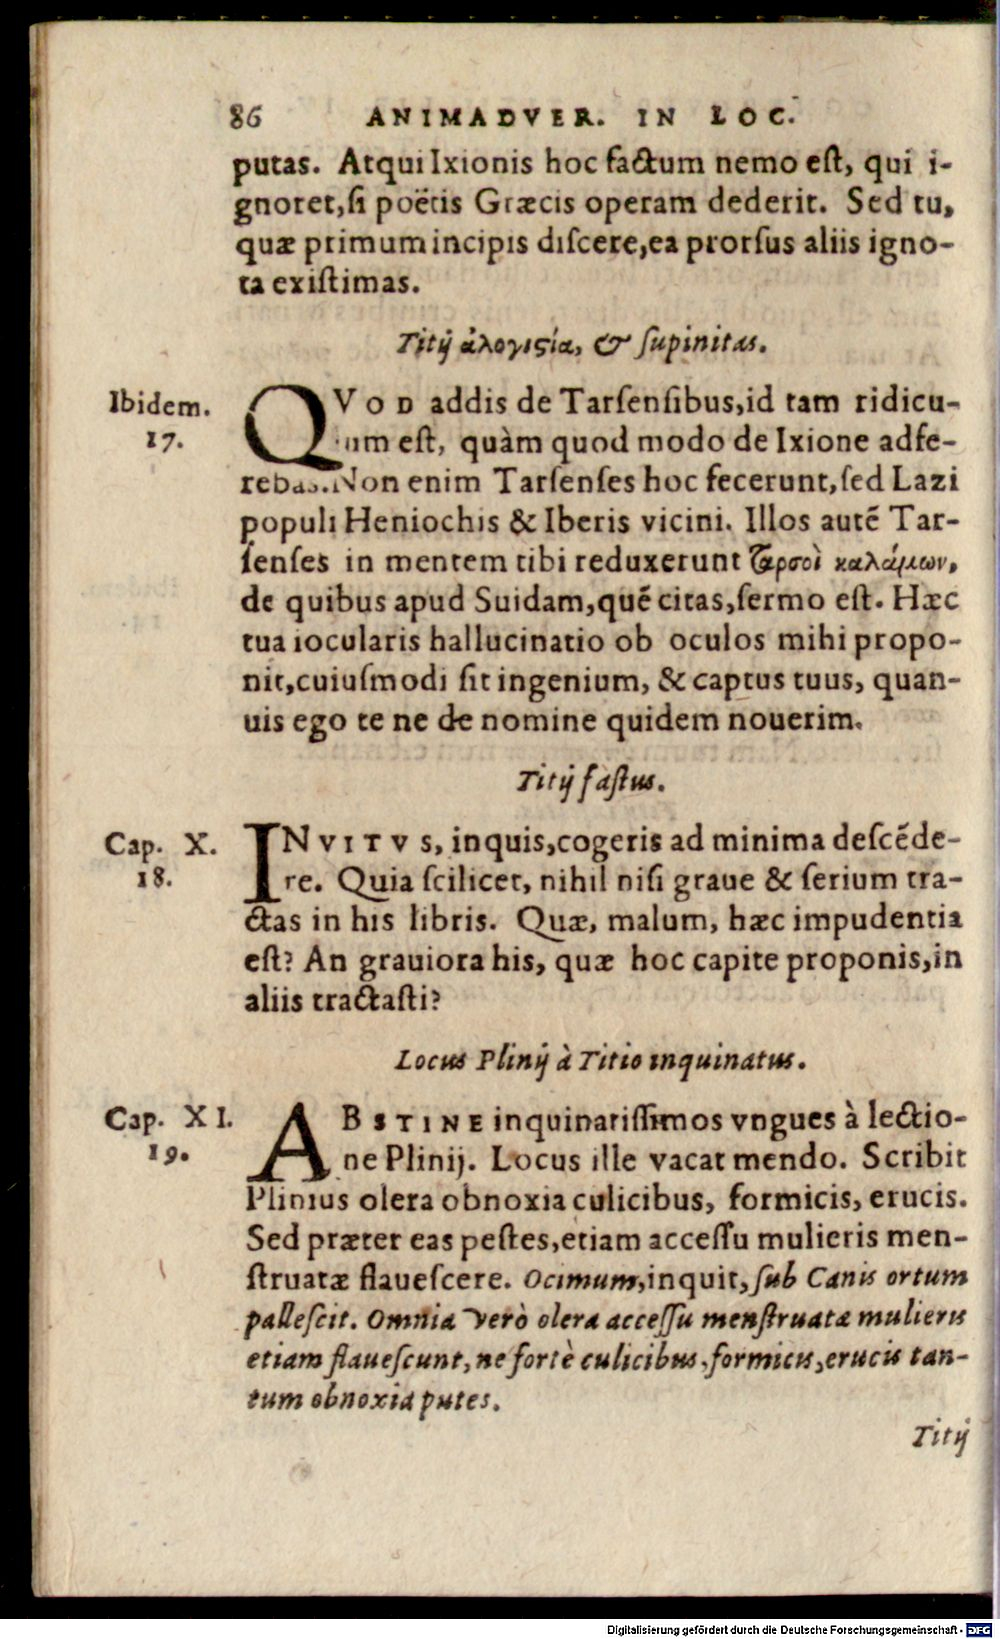 86 ANIMADVER. IN LOC.
putas. Atqui Ixionis hoc factum nemo est, qui i-
gnoret, si poëtis Græcis operam dederit. Sed tu,
quæ primum incipis discere, ea prorsus aliis igno-
ta existimas.
Titij ἀλογιςία, & supinitas.
Ibidem.
17.
QVOD addis de Tarsensibus, id tam ridicu-
lum est, quàm quod modo de Ixione adfe-
rebas. Non enim Tarsenses hoc fecerunt, sed Lazi
populi Heniochis & Iberis vicini. Illos autē Tar-
senses in mentem tibi reduxerunt Ταρσοὶ καλάμων,
de quibus apud Suidam, quē citas, sermo est. Hæc
tua iocularis hallucinatio ob oculos mihi propo-
nit, cuiusmodi sit ingenium, & captus tuus, quan-
uis ego te ne de nomine quidem nouerim.
Titij fastus.
Cap. X.
18.
INVITVS, inquis, cogeris ad minima descēde-
re. Quia scilicet, nihil nisi graue & serium tra-
ctas in his libris. Quæ, malum, hæc impudentia
est? An grauiora his, quæ hoc capite proponis, in
aliis tractasti?
Locus Plinij à Titio inquinatus.
Cap. XI.
19.
ABSTINE inquinatissimos vngues à lectio-
ne Plinij. Locus ille vacat mendo. Scribit
Plinius olera obnoxia culicibus, formicis, erucis.
Sed præter eas pestes, etiam accessu mulieris men-
struatæ flauescere. Ocimum, inquit, sub Canis ortum
pallescit. Omnia verò olera accessu menstruatæ mulieris
etiam flauescunt, ne fortè culicibus, formicis, erucis tan-
tum obnoxia putes.
Titij
Digitalisierung gefördert durch die Deutsche Forschungsgemeinschaft - DFG